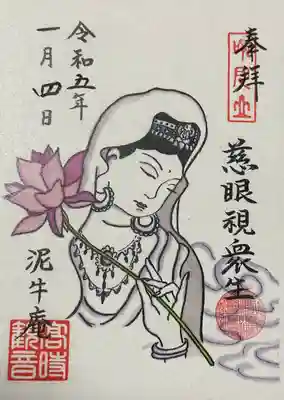 奉拝
慈眼視衆生
令和五年
一月四日
泥牛庵
高時
観音